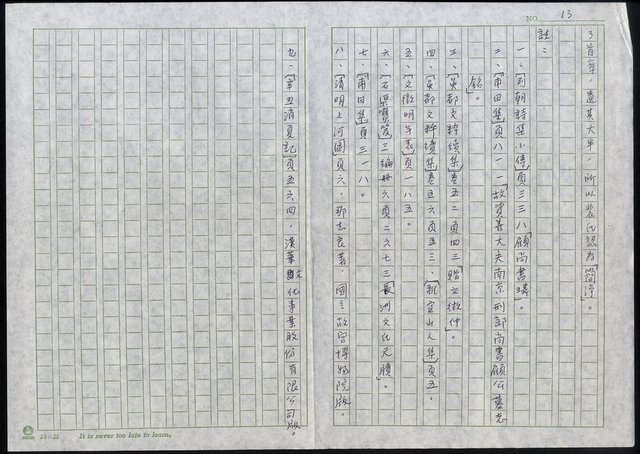 NO. 13
了首卒,盡其大半,所以裴氏認為「簡淨」。
註:
一、「列朝詩集小傳」頁三三八「顧尚書璘」
二、「甫田集」頁八一一「故資善大夫南京刑部尚書顧公墓志
銘」。
三、「吳都文粹續集」卷五二頁四三「贈文徵仲」
四、「吳都文粹續集」卷五六頁五三、「雅宜山人集」頁五。
五、「文徵明年表」頁一八五。
六、「石渠寶笈」三編冊六頁二六七三「長洲文氏兄牘」。
七、「甫田集」頁三一八。
八、「清明上河圖」頁六,那志良著,國立故宮博物院版。
九、「辛丑消夏記」頁五六四,漢華文化事業股份有限公司版。
24×25 It is never too late to learn.